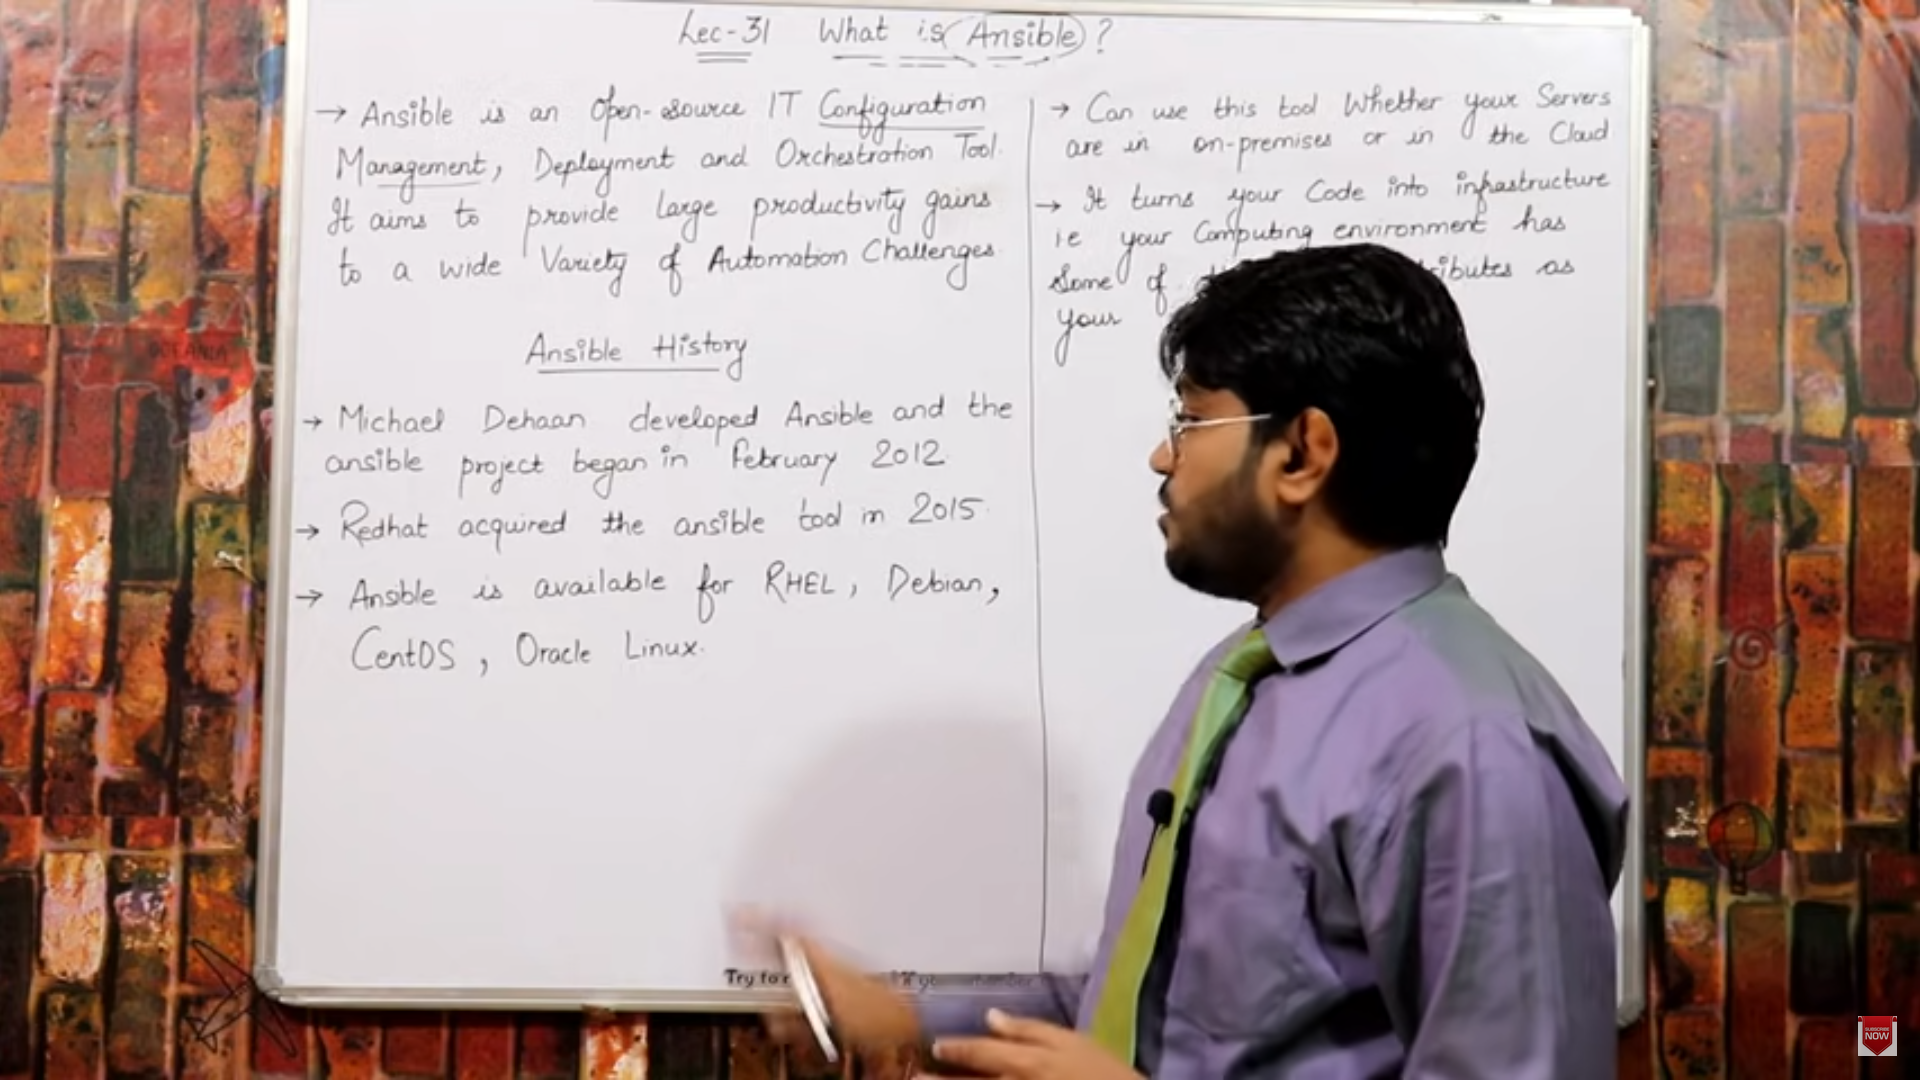 Lec-31 What is Ansible ?
→ Ansible is an Open-source IT Configuration
Management, Deployment and Orchestration Tool.
It aims to provide large productivity gains
to a wide Variety of Automation Challenges.
Ansible History
→ Michael Dehaan developed Ansible and the
ansible project began in February 2012.
→ Redhat acquired the ansible tool in 2015.
→ Ansible is available for RHEL, Debian,
CentOS, Oracle Linux.
→ Can use this tool Whether your Servers
are in on-premises or in the Cloud
→ It turns your Code into infrastructure
ie your Computing environment has
Some of as
your
Try to
OCEANIA
SUBSCRIBE
NOW